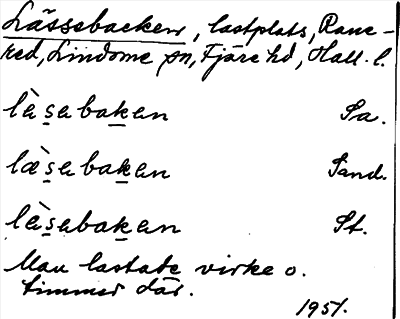 Lässebacken, lastplats, Rane-
red, Lindome sn, Fjäre hd, Hall. l.
lèsabakan Sa.
læ̀sabakan Sand.
lèsabakan St.
Man lastade virke o.
timmer där.
1951.